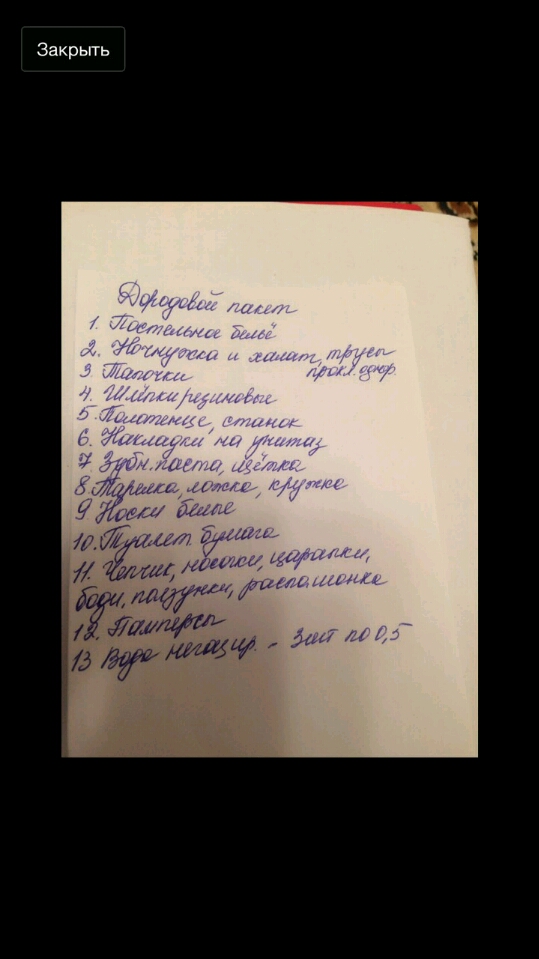 Закрыть
Дородовой пакет
1. Постельное бельё
2. Ночнушка и халат, трусы
прокл. однор.
3 Тапочки
4. Шлёпки резиновые
5. Полотенце, станок
6. Накладки на унитаз
7. Зубн. паста, щётка
8. Тарелка, ложка, кружка
9 Носки белые
10. Туалет. бумага
11. Чепчик, носочки, царапки,
боди, ползунки, распашонка
12. Памперсы
13 Вода негазир. - 3 шт по 0,5